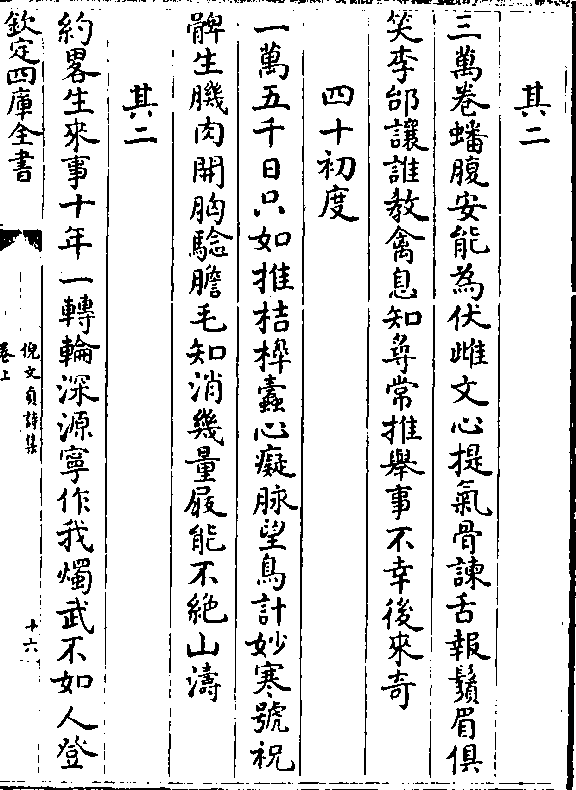 其二
三萬卷蟠腹安能為伏雌文心提氣骨諫舌報鬚眉俱
笑李郃讓誰教禽息知尋常推舉事不幸後來奇
四十初度
一萬五千日只如推桔槔蠧心癡脉望鳥計妙寒號祝
髀生機肉開胸驗膽毛知消幾量屐能不絶山濤
其二
約畧生來事十年一轉輪深源寧作我燭武不如人登
欽定四庫全書
倪文貞詩集
卷上
十六